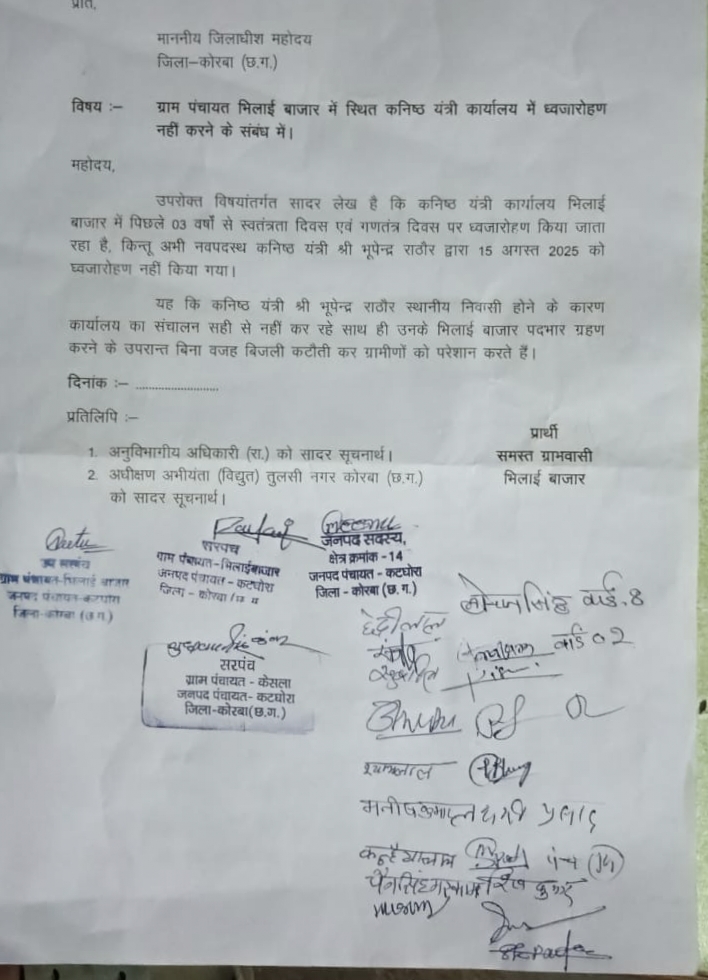 प्रति,
माननीय जिलाधीश महोदय
जिला–कोरबा (छ.ग.)
विषय :– ग्राम पंचायत भिलाई बाजार में स्थित कनिष्ठ यंत्री कार्यालय में ध्वजारोहण
नहीं करने के संबंध में।
महोदय,
उपरोक्त विषयांतर्गत सादर लेख है कि कनिष्ठ यंत्री कार्यालय भिलाई
बाजार में पिछले 03 वर्षो से स्वतंत्रता दिवस एवं गणतंत्र दिवस पर ध्वजारोहण किया जाता
रहा है, किन्तू अभी नवपदस्थ कनिष्ठ यंत्री श्री भूपेन्द्र राठौर द्वारा 15 अगस्त 2025 को
ध्वजारोहण नहीं किया गया।
यह कि कनिष्ठ यंत्री श्री भूपेन्द्र राठौर स्थानीय निवासी होने के कारण
कार्यालय का संचालन सही से नहीं कर रहे साथ ही उनके भिलाई बाजार पदभार ग्रहण
करने के उपरान्त बिना वजह बिजली कटौती कर ग्रामीणों को परेशान करते है।
दिनांक :– ........................
प्रतिलिपि :–
प्रार्थी
1. अनुविभागीय अधिकारी (रा.) को सादर सूचनार्थ।
समस्त ग्रामवासी
2. अधीक्षण अभीयंता (विद्युत) तुलसी नगर कोरबा (छ.ग.)
भिलाई बाजार
को सादर सूचनार्थ।
उप सरपंच
ग्राम पंचायत-भिलाई बाजार
जनपद पंचायत-कटघोरा
जिला-कोरबा (छ.ग.)
सरपंच
ग्राम पंचायत-भिलाईबाजार
जनपद पंचायत-कटघोरा
जिला - कोरबा
जनपद सदस्य,
क्षेत्र क्रमांक - 14
जनपद पंचायत - कटघोरा
जिला - कोरबा (छ. ग.)
सरपंच
ग्राम पंचायत - केसला
जनपद पंचायत - कटघोरा
जिला-कोरबा(छ.ग.)
वार्ड.8
वार्ड 02
श्यामलाल